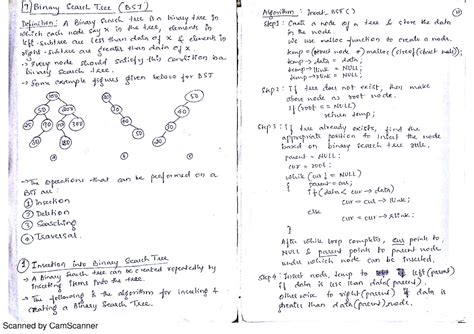 7) Binary Search Tree (BST)
Definition: A Binary Search tree is a binary tree in
which each node say x in the tree, elements in
left-subtree are less than data of x & elements in
right-subtree are greater than data of x.
→ Every node should satisfy this condition in a
binary search tree.
→ Some example figures given below for BST
→ The operations that can be performed on a
BST are:
① Insertion
② Deletion
③ Searching
④ Traversal.
① Insertion into Binary Search Tree
→ A Binary Search tree can be created repeatedly by
inserting items into the tree.
→ The following is the algorithm for inserting &
creating a Binary Search Tree.
Algorithm: Insert_BST()
Step 1: Create a node of a tree & store the data
in the node.
We use malloc function to create a node.
temp = (struct node *) malloc (sizeof(struct node));
temp → data = data;
temp → llink = NULL;
temp → rlink = NULL;
Step 2: If tree does not exist, then make
above node as root node.
if (root == NULL)
return temp;
Step 3: If tree already exists, find the
appropriate position to insert the node
based on binary search tree rule.
parent = NULL;
cur = root;
while (cur != NULL)
{
parent = cur;
if (data < cur → data)
cur = cur → llink;
else
cur = cur → rlink;
}
After while loop completes, cur points to
NULL & parent points to parent node
under which node can be inserted.
Step 4: Insert node, temp to left (parent)
if data is less than data(parent).
otherwise to right(parent) if data is
greater than data(parent) node.
Scanned by CamScanner